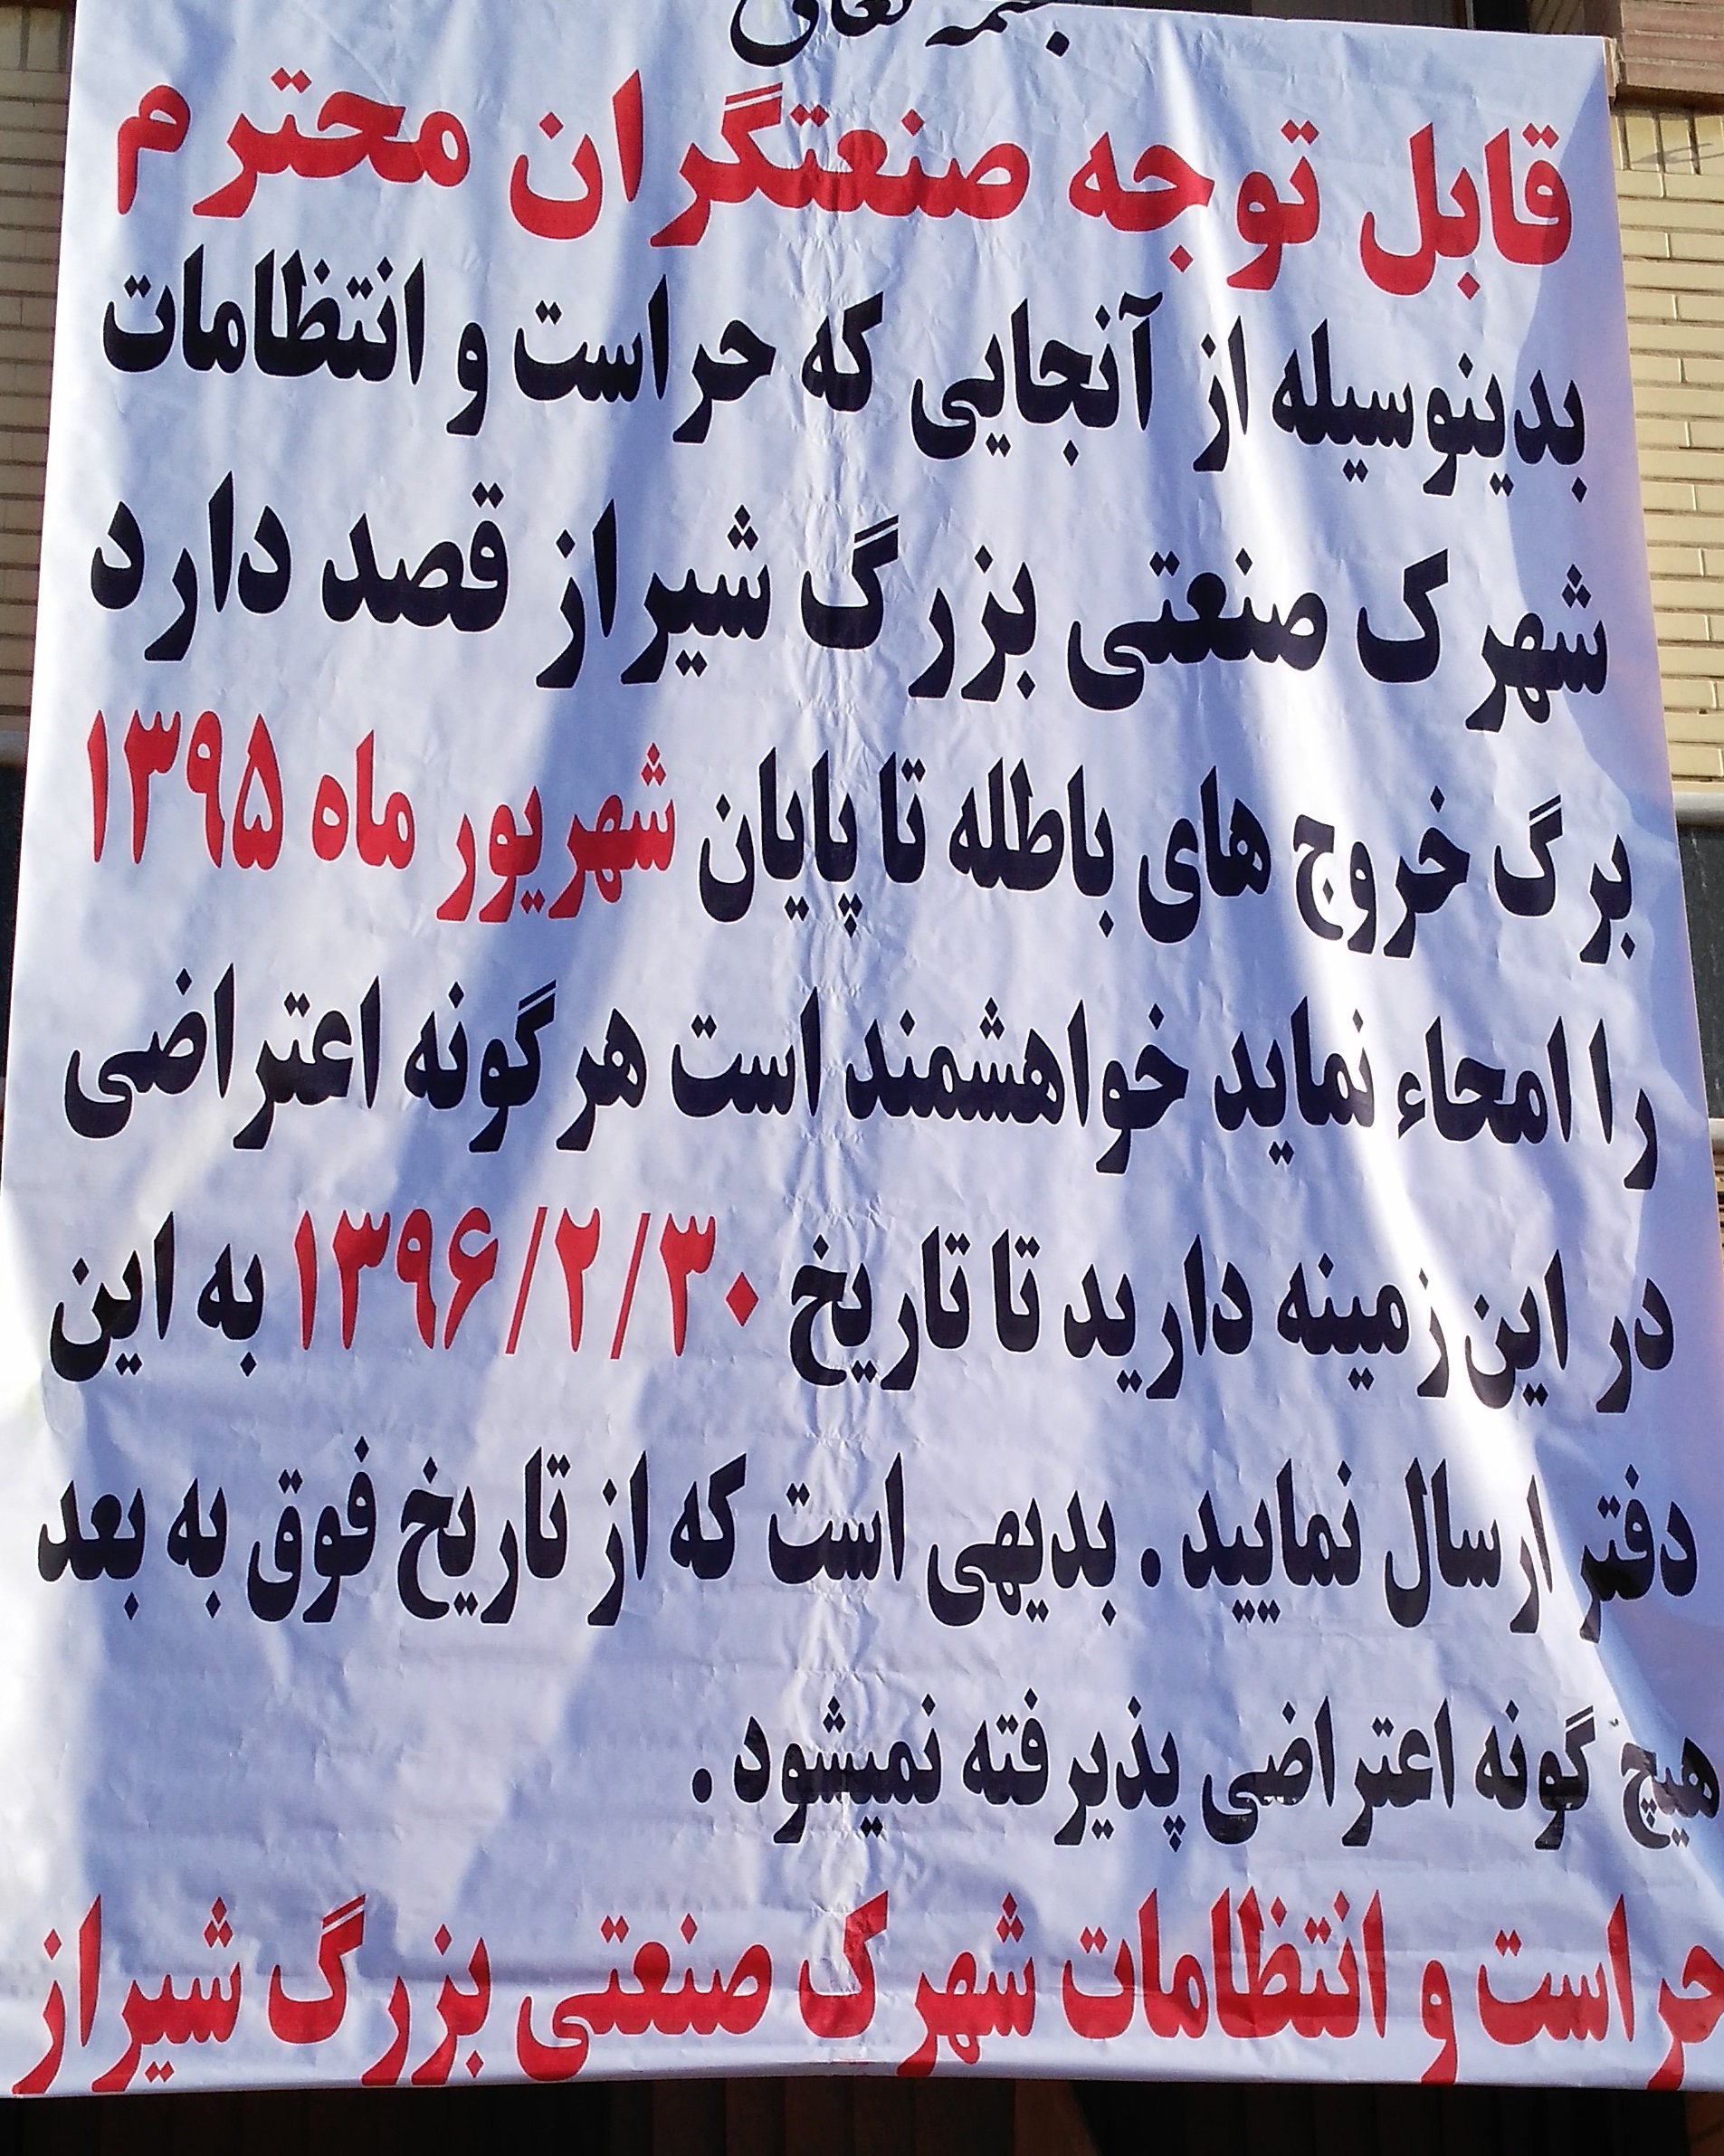 بسمه تعالی
قابل توجه صنعتگران محترم
بدینوسیله از آنجایی که حراست و انتظامات
شهرک صنعتی بزرگ شیراز قصد دارد
برگ خروج های باطله تا پایان شهریور ماه ۱۳۹۵
را امحاء نماید خواهشمند است هرگونه اعتراضی
در این زمینه دارید تا تاریخ ۱۳۹۶/۲/۳۰ به این
دفتر ارسال نمایید . بدیهی است که از تاریخ فوق به بعد
هیچ گونه اعتراضی پذیرفته نمیشود .
حراست و انتظامات شهرک صنعتی بزرگ شیراز